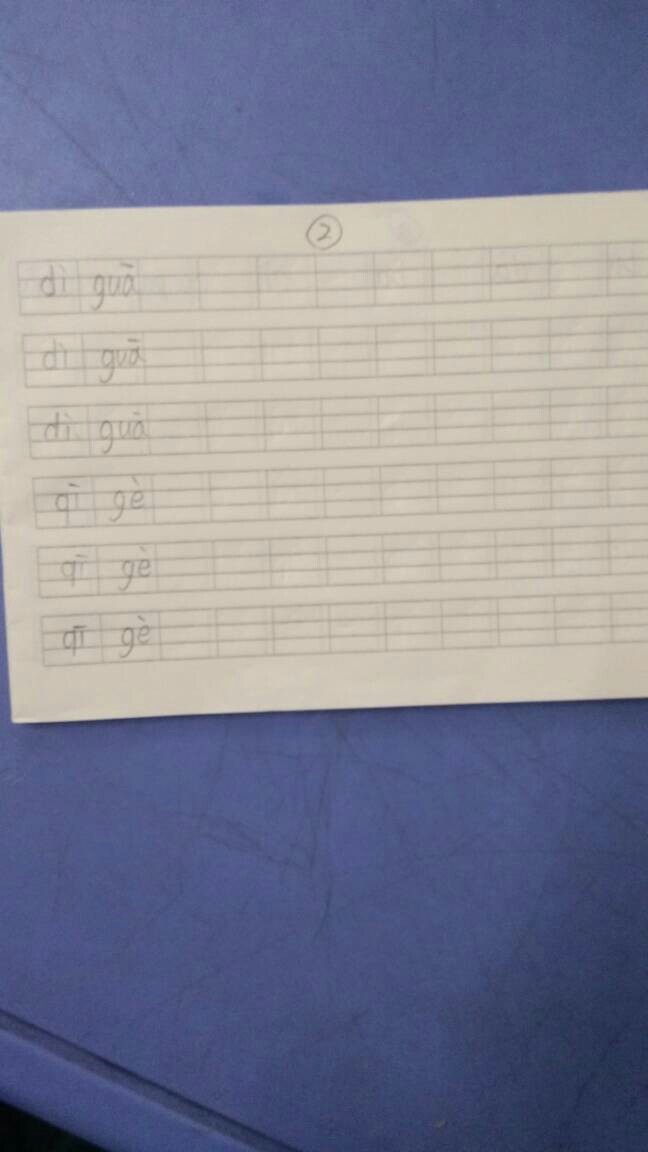 ②
dì guā
dì guā
dì guā
qī gè
qī gè
qī gè